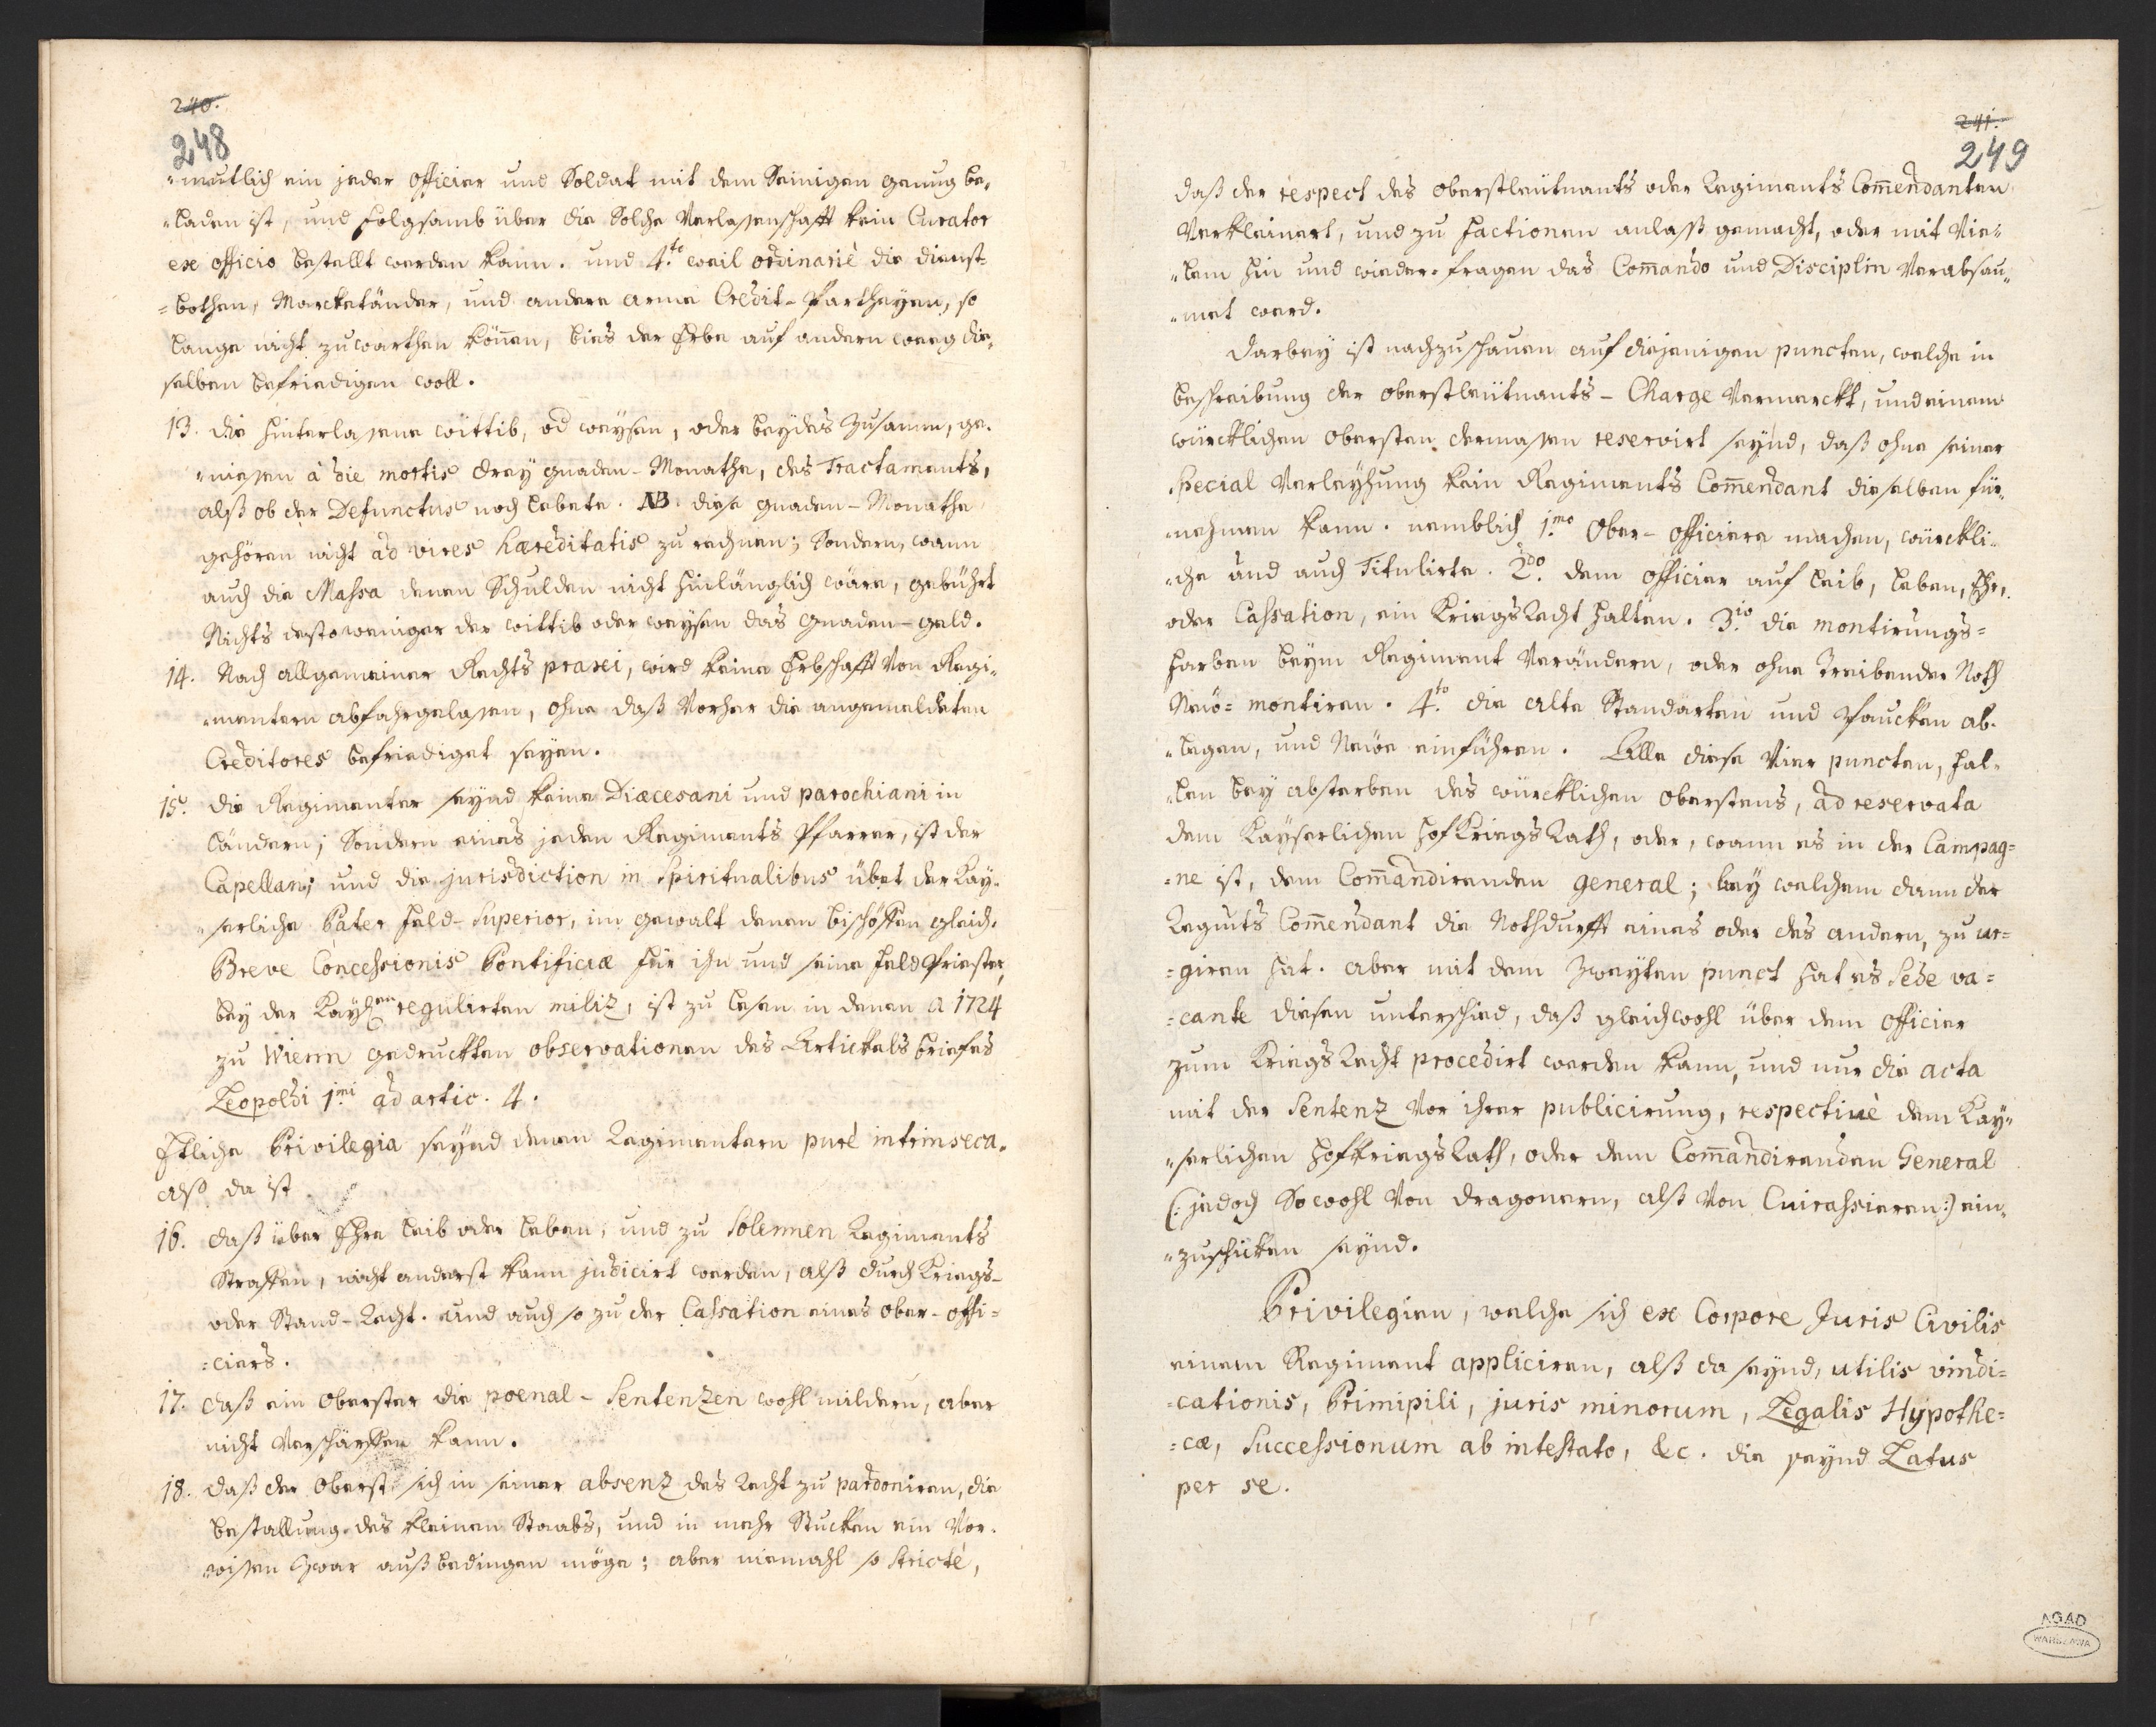 240.
248
"mutlich ein jeder Officier und Soldat mit dem Seinigen genug be„
„laden ist, und folgsamb über die Solche Verlassenschafft kein Curator
ex officio bestellt werden kann. und 4.to weil ordinariè die dienst=
=bothen, Marcketänder, und andere arme Credit-Partheyen, so
lange nicht zuwarthen können, bies der Erbe auf andern weeg die„
selben befriedigen woll.
13. die hinterlassene wittib, od weysen, oder beydes zusamm, ge„
„niessen à die mortis drey gnaden-Monathe, des Tractaments,
alß ob der Defunctus noch lebete. NB. diese gnaden-Monathe
gehören nicht ad vires hæreditatis zu rechnen; Sondern, wann
auch die Massa denen Schulden nicht hinlänglich wäre, gebührt
Nichts destoweniger der wittib oder weysen das gnaden-geld.
14. Nach allgemeiner Rechts praxi, wird keine Erbschafft von Regi„
„mentern abfahrgelassen, ohne daß vorher die angemeldeten
Creditores befriediget seyen.
15. die Regimenter seynd keine Diæcesani und parochiani in
Ländern; Sondern eines jeden Regiments Pfarrer, ist der
Capellan; und die jurisdiction in Spiritualibus übet der Kay„
„serliche Pater Feld-Superior, im gewalt denen bischöffen gleich.
Breve Concessionis Pontificiæ für ihn und seine Feld Priester,
bey der Kayßen regulirten miliz, ist zu lesen in denen A 1724
zu Wienn gedruckten observationen des Artickels briefes
Leopoldi 1mi ad artic. 4.
Etliche Privilegia seynd denen Regimentern purè intrinseca„
also da ist
16. daß über Ehre leib oder leben, und zu Solennen Regiments
Straffen, nicht anderst kann judicirt werden, alß durch Kriegs-
oder Stand-Recht. und auch so zu der Cassation eines Ober-Offi=
=ciers.
17. daß ein Obrister die poenal-Sentenzen wohl mildern, aber
nicht verschärffen kann.
18. daß der Oberst sich in seiner absenz das Recht zu pardoniren, die
bestallung des kleinen Staabs, und in mehr Stucken ein Vor„
„wissen zwar außbedingen möge; aber niemahl so strictè,
241.
249
daß der respect des Oberstleütnants oder Regiments Com̄endanten
verkleinert, und zu Factionen anlaß gemacht, oder mit vie„
„lem hin und wieder-fragen das Com̄ando und Disciplin verabsau„
„met werd.
Darbey ist nachzuschauen auf diejenigen puncten, welche in
beschreibung der Oberstleütnants-Charge vermerckt, und einem
würcklichen Obersten dermassen reservirt seynd, daß ohne seiner
Special verleyhung kein Regiments Com̄endant dieselben für„
nehmen kann. nemblich 1.mo Ober-Officiere machen, würckli„
„che und auch Titulirte. 2.do dem Officier auf leib, leben, Ehr,
oder Cassation, ein KriegsRecht halten. 3.io die montirungs=
Farben beym Regiment verändern, oder ohne treibender Noth
Neü=montiren. 4.to die alte Standarten und Paucken ab„
„legen, und Neüe einführen. Alle diese vier puncten, fal„
„len bey absterben des würcklichen Oberstens, ad reservata
dem Kayserlichen HofKriegsRath, oder, wann es in der Campag=
=ne ist, dem Com̄andirenden general; bey welchem dann der
Regmts Com̄endant die Nothdurfft eines oder des andern, zu ur=
=giren hat. aber mit dem zweyten punct hat es Sede va=
=cante diesen unterschied, daß gleichwohl über dem Officier
zum KriegsRecht procedirt werden kann, und nur die acta
mit der Sentenz vor ihrer publicirung, respectivè dem Kay„
„serlichen HofKriegsRath, oder dem Com̄andirenden General
(: jedoch Sowohl von Dragonern, alß von Cuirassieren:) ein„
„zuschicken seynd.
Privilegien, welche sich ex Corpore Juris Civilis
einem Regiment appliciren, alß da seynd, utilis vindi=
=cationis, Primipili, juris minorum, Legalis Hypothe=
=cæ, Successionum ab intestato, &c. die seynd Latus
per se.
AGAD
WARSZAWA